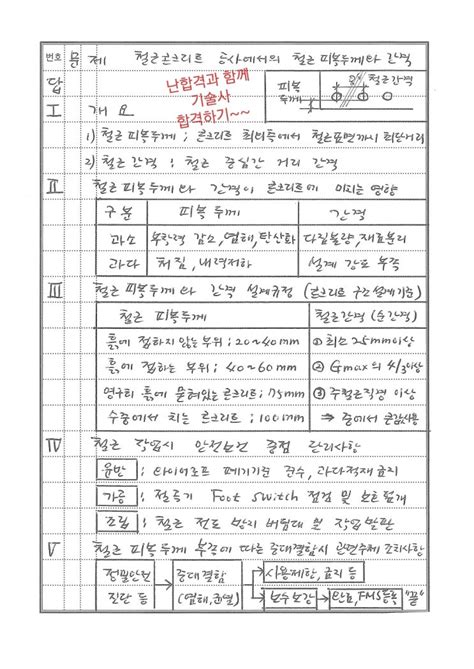 번호 문 제 철근콘크리트 공사에서의 철근 피복두께와 간격
답
난합격과 함께
기술사
합격하기~~
피복
두께
철근간격
I 개 요
1) 철근 피복두께 ; 콘크리트 최외측에서 철근표면까지 최단거리
2) 철근 간격 : 철근 중심간 거리 간격
II 철근 피복두께와 간격이 콘크리트에 미치는 영향
구 분 피복 두께 간격
과소 부착력 감소, 염해, 탄산화 다짐불량, 재료분리
과다 처짐, 내력저하 설계 강도 부족
III 철근 피복두께와 간격 설계규정 (콘크리트 구조설계기준)
철근 피복두께 철근간격 (순간격)
흙에 접하지 않는 부위 ; 20~40mm ① 최소 25mm이상
흙에 접하는 부위 ; 40~60mm ② Gmax의 4/3이상
영구히 흙에 묻혀있는 콘크리트 ; 75mm ③ 주철근직경 이상
수중에서 치는 콘크리트 ; 100mm ⇒ 중에서 큰값사용
IV 철근 작업시 안전보건 중점 관리사항
운반 ; 와이어로프 폐기기준 준수, 과다적재 금지
가공 ; 절곡기 Foot switch 점검 및 보호덮개
조립 ; 철근 전도 방지 버팀대 및 작업발판
V 철근 피복두께 부족에 따른 중대결함시 관련주체 조치사항
정밀안전 중대결함 사용제한, 금지 등
진단 등 (염해, 균열) 보수보강 완료, FMS등록 "끝"